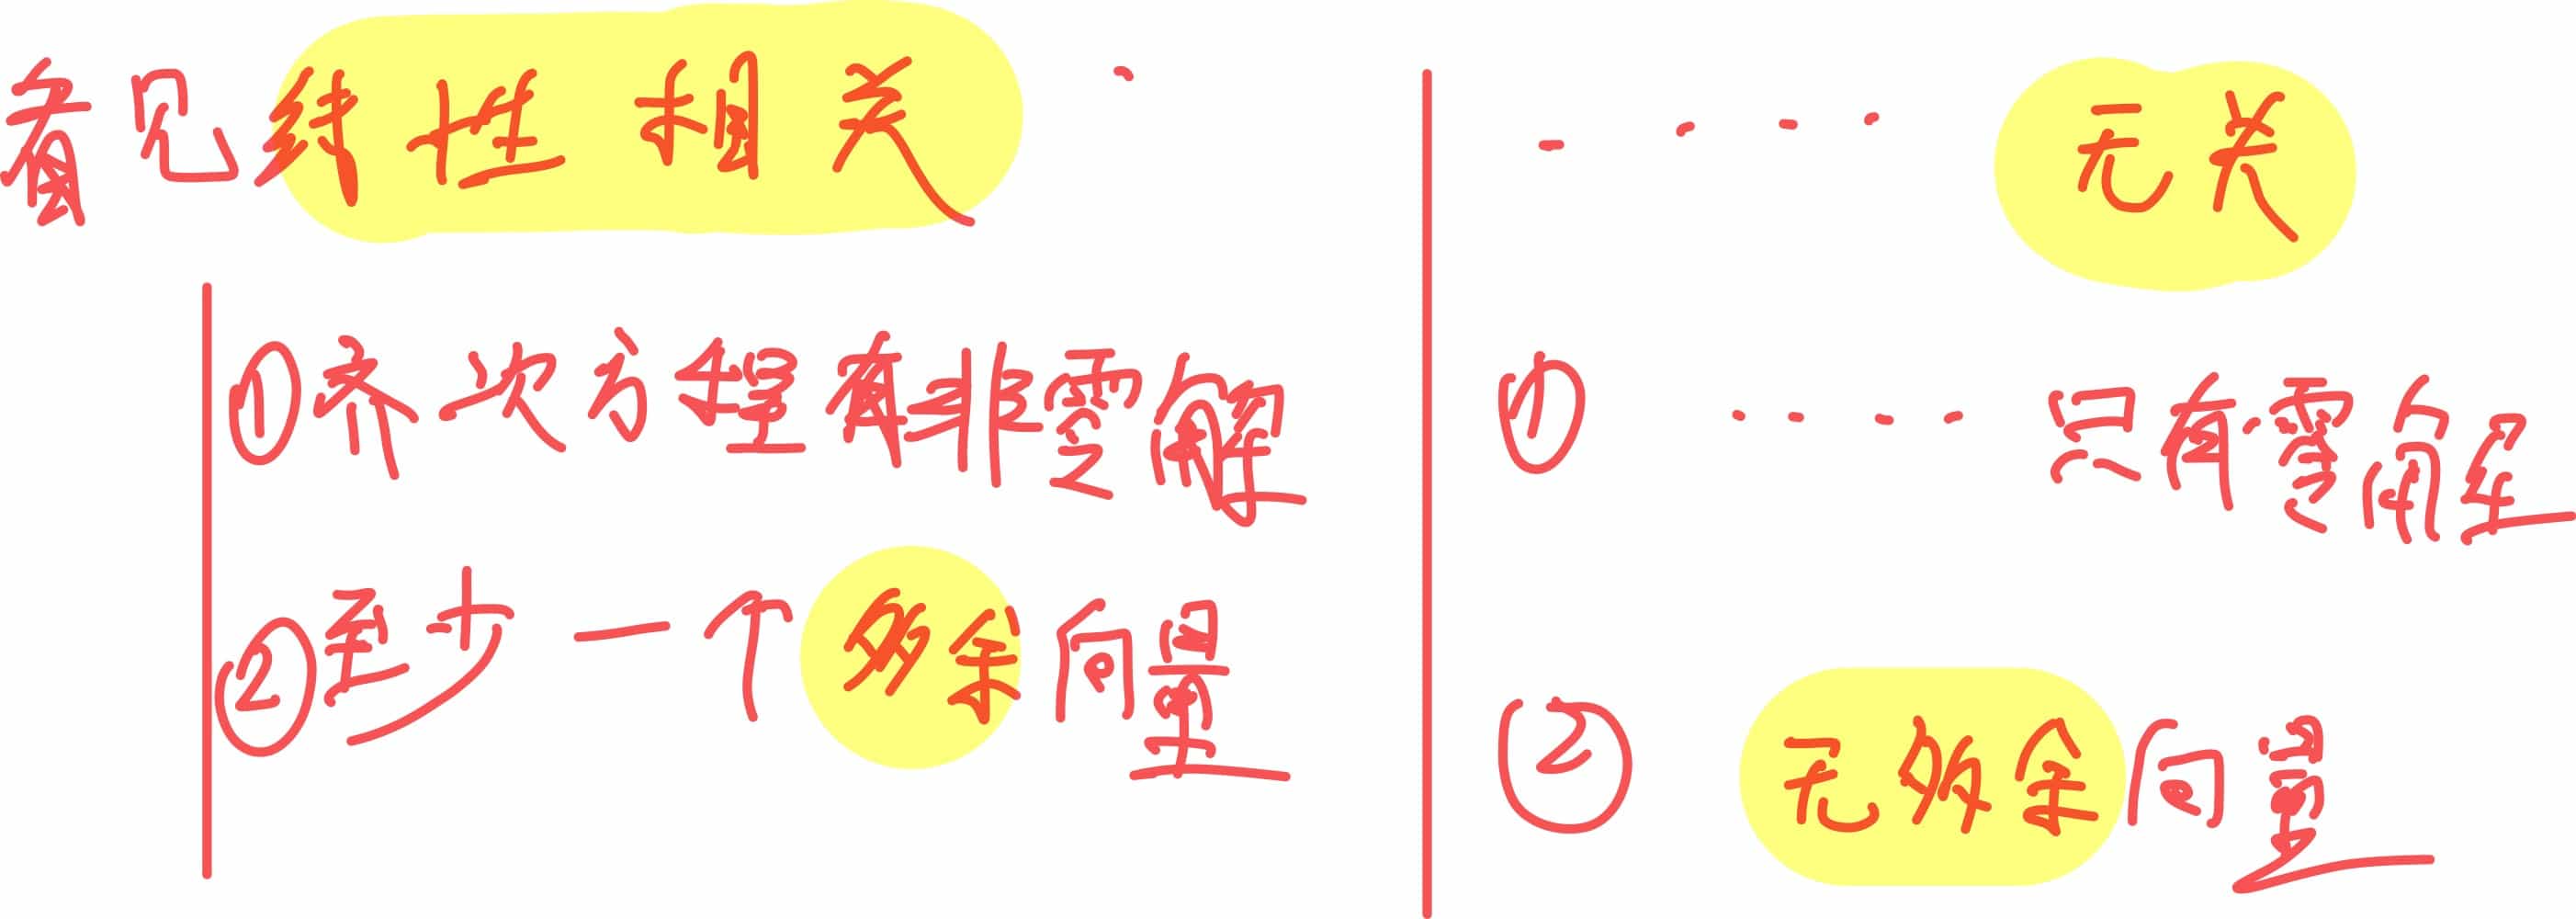 看见线性相关
①齐次方程有非零解
②至少一个多余向量
.... 无关
① .... 只有零解
② 无多余向量